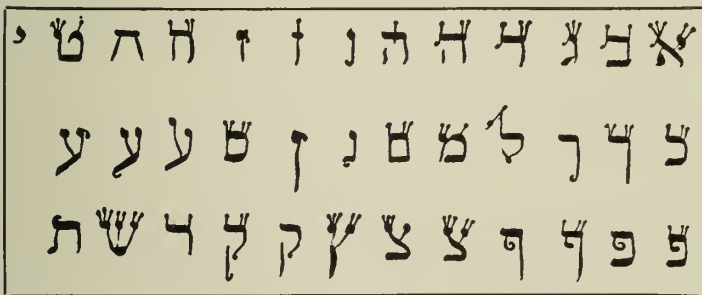 א ב ג ד ה ה ו ז ז ח ח ט י
כ ך ך ל מ ם נ ן ס ע ע ע
פ פ ף ף צ צ ץ ק ק ר ש ת